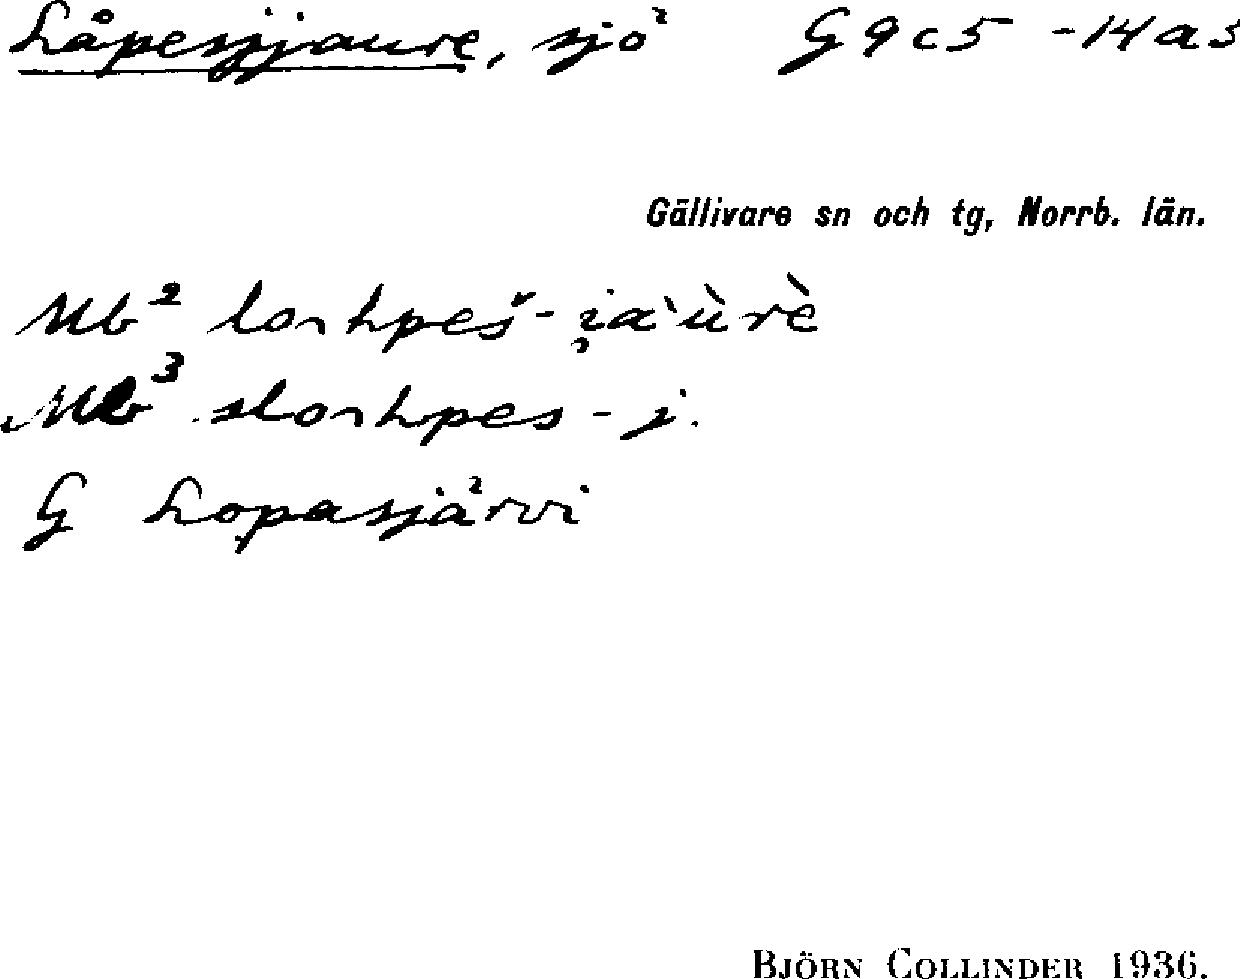 Låpesjjaure, sjö G 9 c 5 - 14 a 5
Gällivare sn och tg, Norrb. län.
Mb² lоhpeš-i̯a`ùrè
Mb³ slohpes-j.
G Lopasjärvi
BJÖRN COLLINDER 1936.